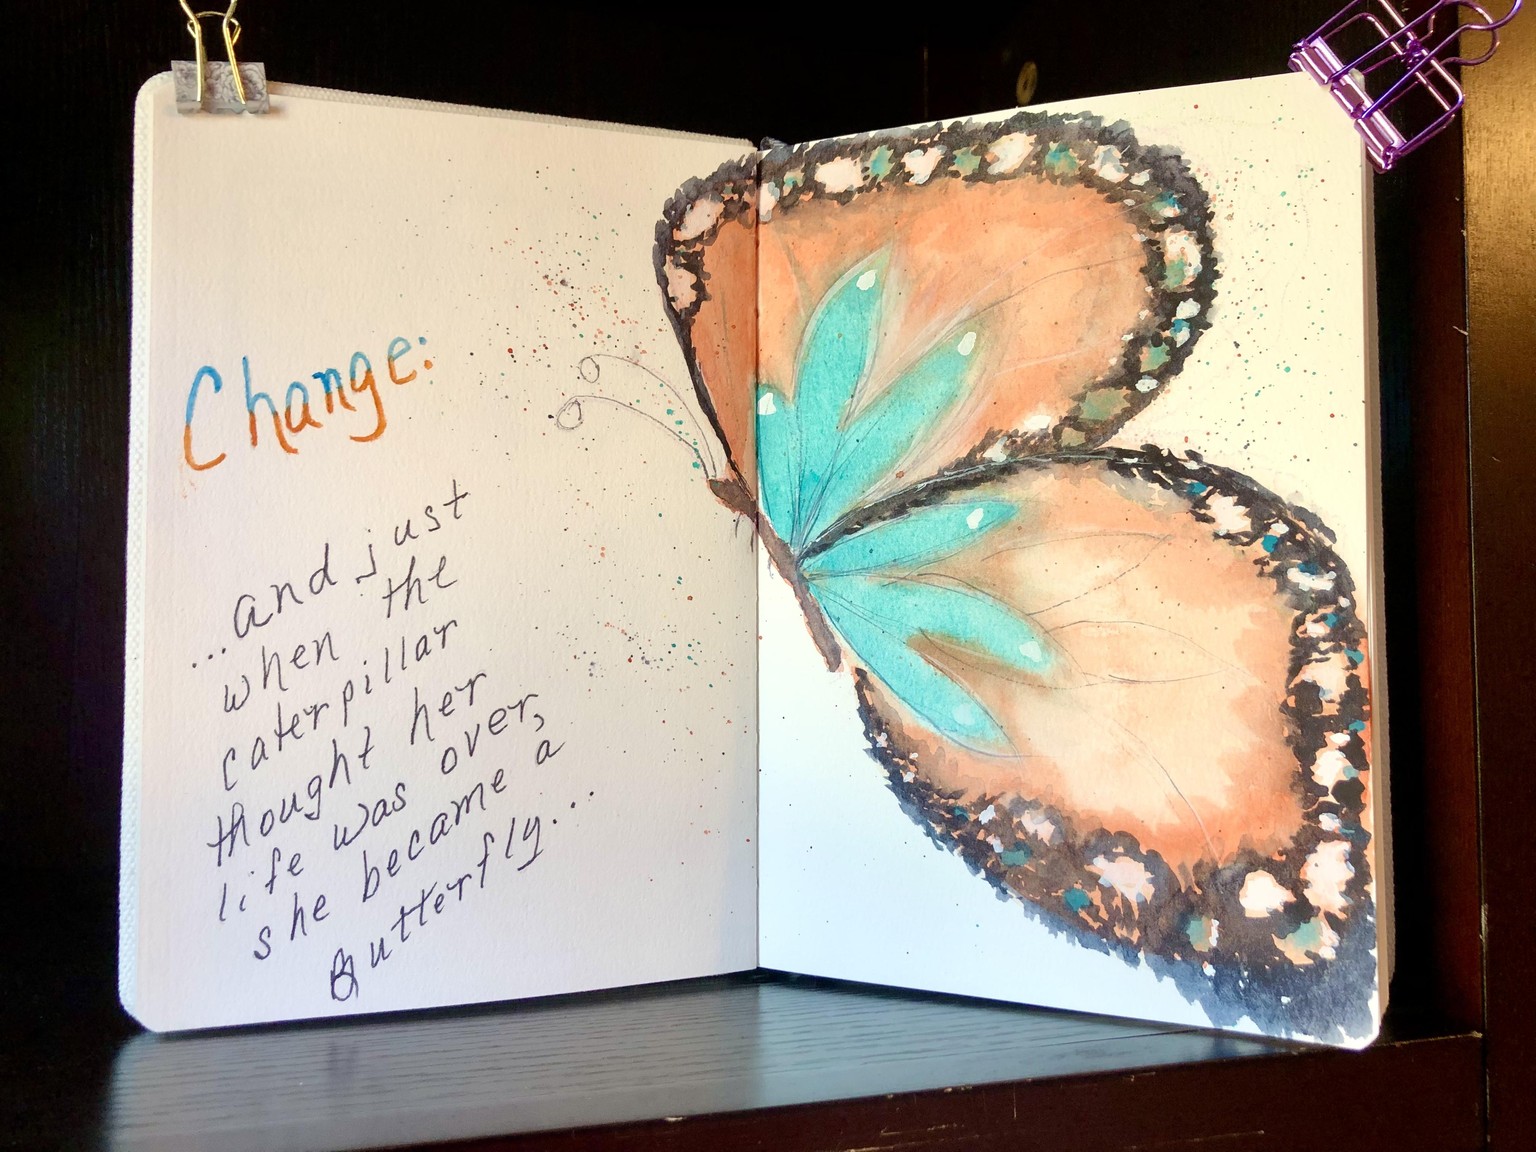 Change:
...and just
when the
caterpillar
thought her
life was over,
she became a
Butterfly...